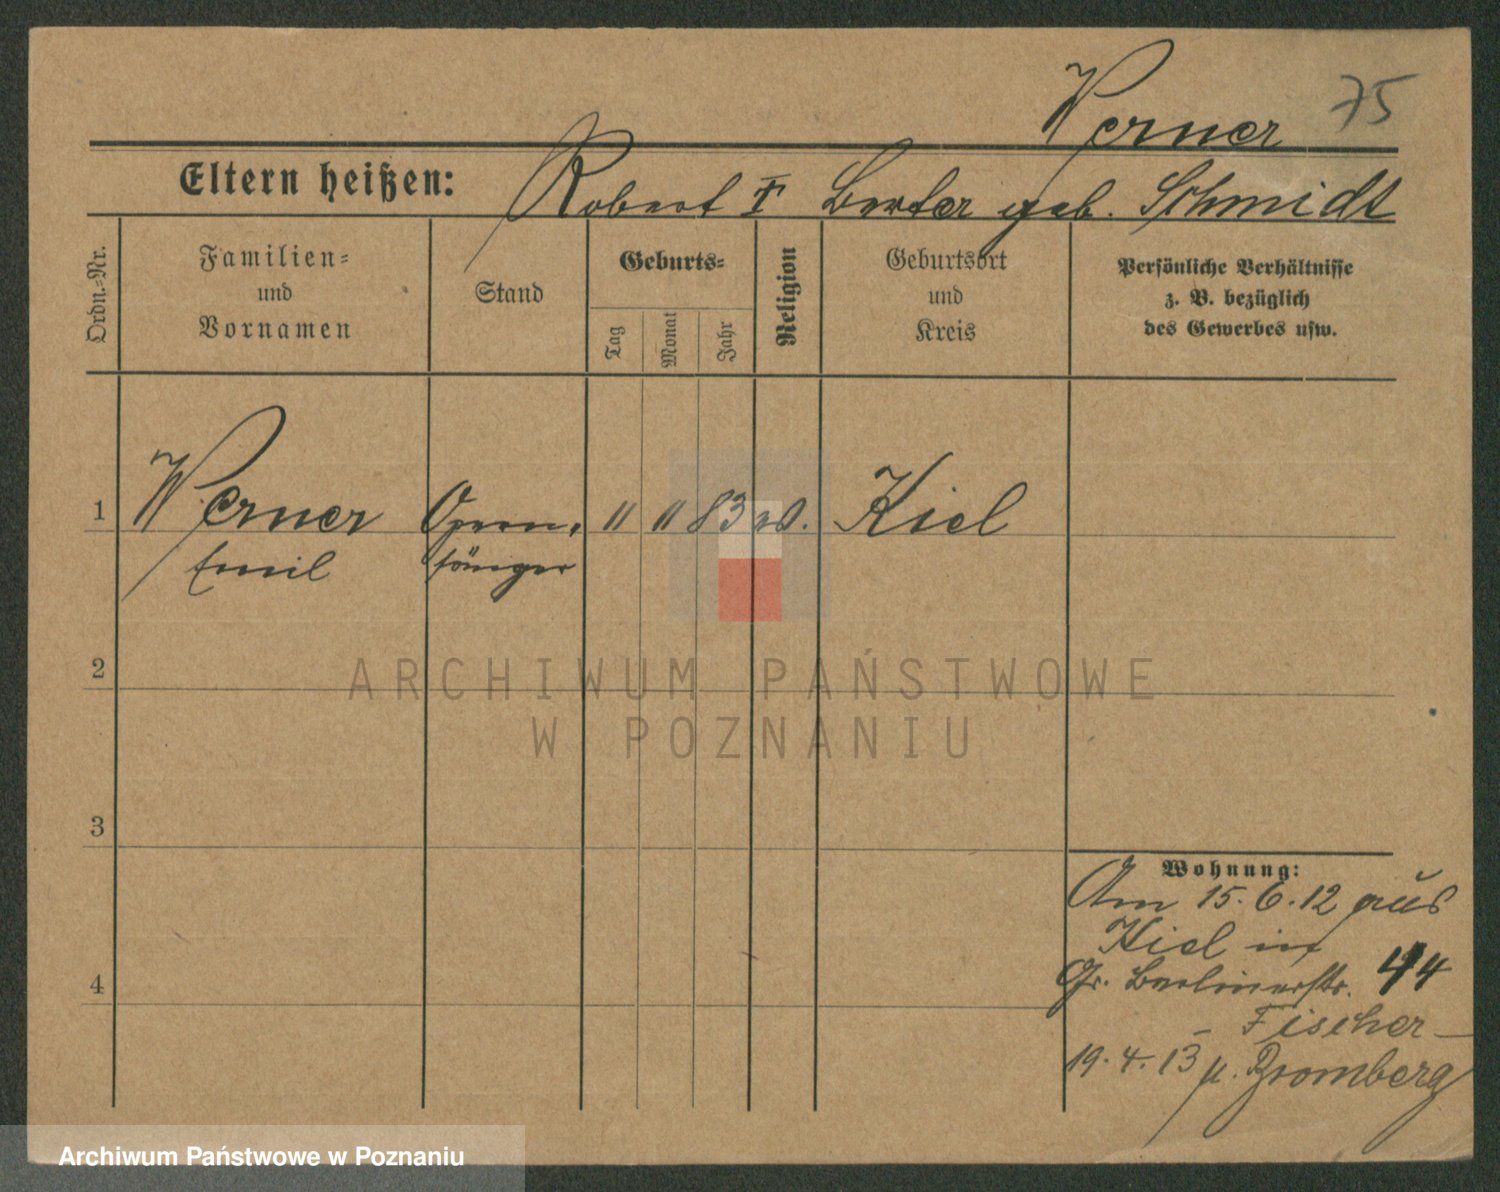 Werner 75
Eltern heißen: Robert u. Berta geb. Schmidt
Ordn.-Nr.
Familien-
und
Vornamen
Stand
Geburts-
Tag
Monat
Jahr
Religion
Geburtsort
und
Kreis
Persönliche Verhältnisse
z. B. bezüglich
des Gewerbes usw.
1 Werner Opern- " " 83 Kiel
Emil sänger
2
ARCHIWUM PAŃSTWOWE
W POZNANIU
3
Wohnung:
Am 15.6.12 aus
Kiel in
Gr. Berlinerstr. 44
- Fischer -
19.4.13 Bromberg
4
Archiwum Państwowe w Poznaniu